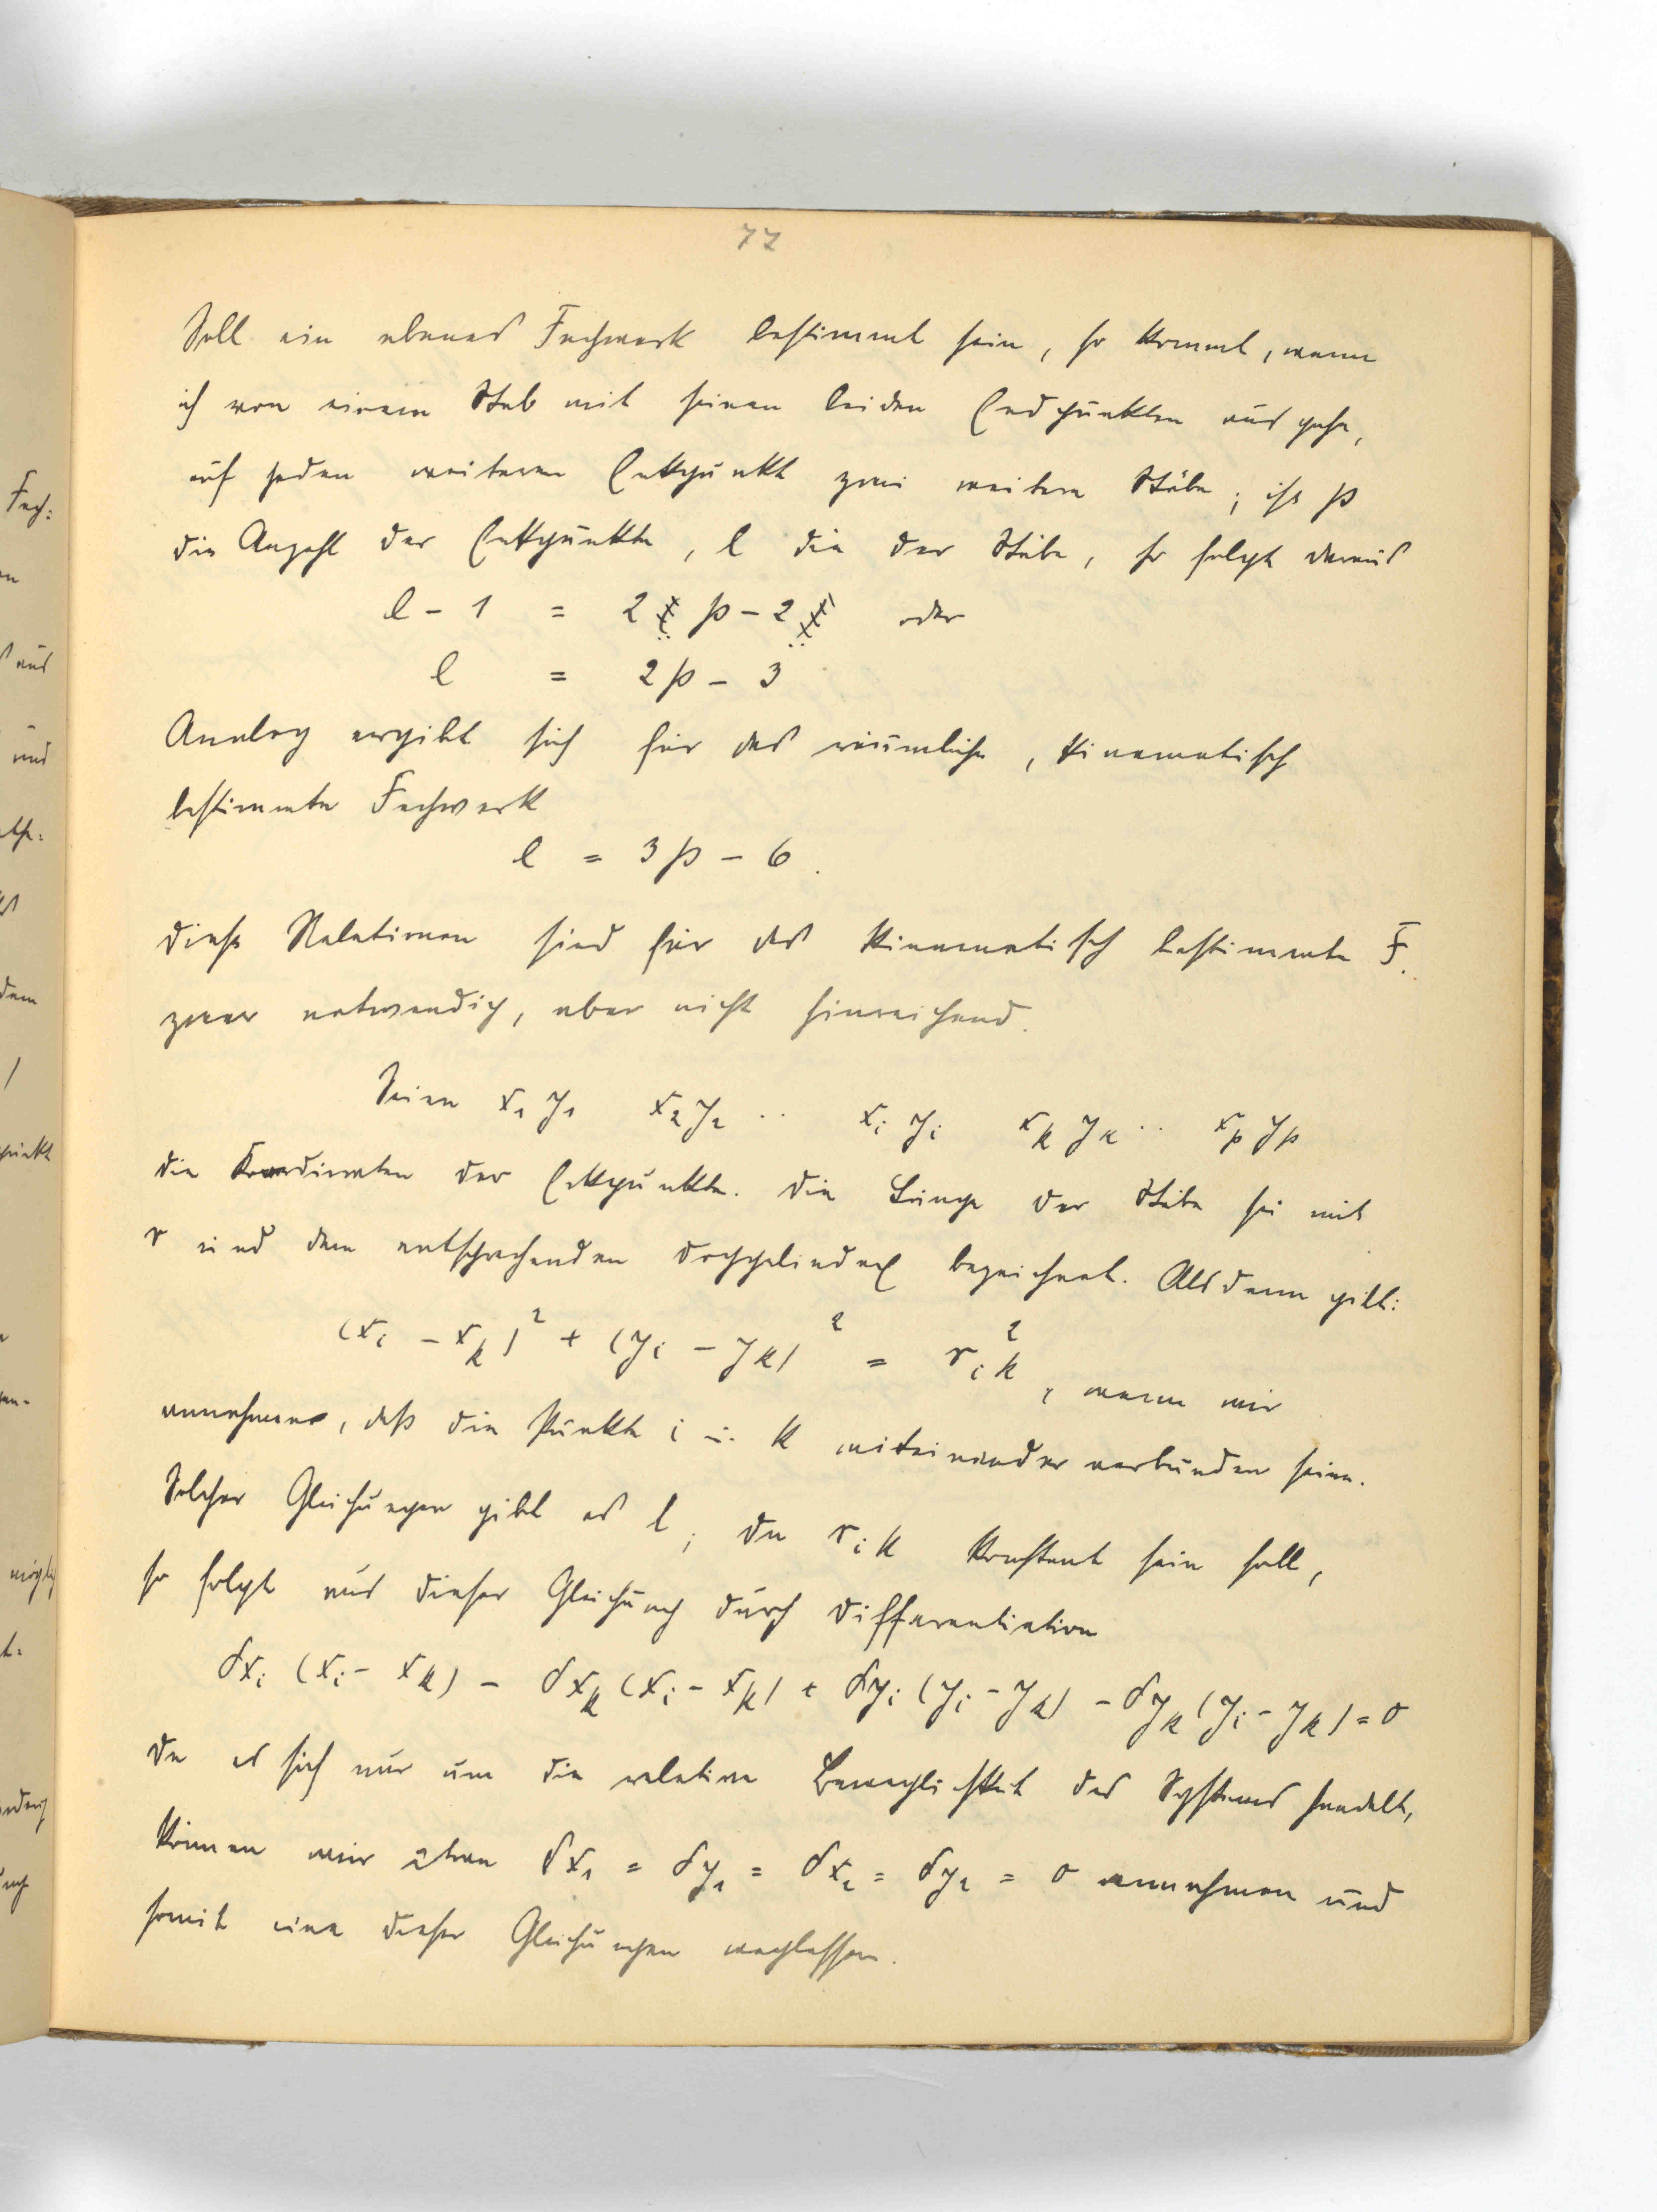 77
Soll ein ebenes Fachwerk bestimmt sein, so kommt, wenn
ich von einem Stab mit seinen beiden Endpunkten ausgehe,
auf jeden weiteren Eckpunkt zwei weitere Stäbe; ist p
die Anzahl der Eckpunkte, l die der Stäbe, so folgt daraus
l - 1 = 2 ( p - 2 ) oder
l = 2p - 3
Analog ergibt sich für das räumliche, kinematisch
bestimmte Fachwerk
l = 3p - 6.
Diese Relationen sind für das kinematisch bestimmte F.
zwar notwendig, aber nicht hinreichend.
Seien x₁ y₁ x₂ y₂ .. xᵢ yᵢ xₖ yₖ .. xₚ yₚ
die Koordinaten der Eckpunkte. Die Länge der Stäbe sei mit
r und dem entsprechenden Doppelindex bezeichnet. Alsdann gilt:
(xᵢ - xₖ)² + (yᵢ - yₖ)² = rᵢₖ², wenn wir
annehmen, daß die Punkte i u. k miteinander verbunden seien.
Solcher Gleichungen gibt es l; da rᵢₖ konstant sein soll,
so folgt aus dieser Gleichung durch Differentiation
δxᵢ (xᵢ - xₖ) - δxₖ (xᵢ - xₖ) + δyᵢ (yᵢ - yₖ) - δyₖ (yᵢ - yₖ) = 0
Da es sich nur um die relative Beweglichkeit des Systems handelt,
können wir etwa δx₁ = δy₁ = δx₂ = δy₂ = 0 annehmen und
somit eine dieser Gleichungen weglassen.
Fach:
aus
und
dem
punkt
möglich